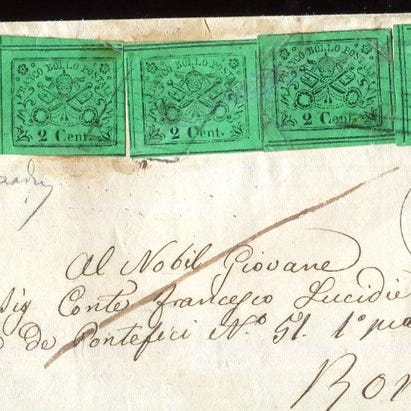 FRANCO BOLLO POSTALE
2 Cent.
FRANCO BOLLO POSTALE
2 Cent.
FRANCO BOLLO POSTALE
2 Cent.
Al Nobil Giovane
Sig Conte Francesco Lucidi
de Pontefici N.º 51. 1º
Ro